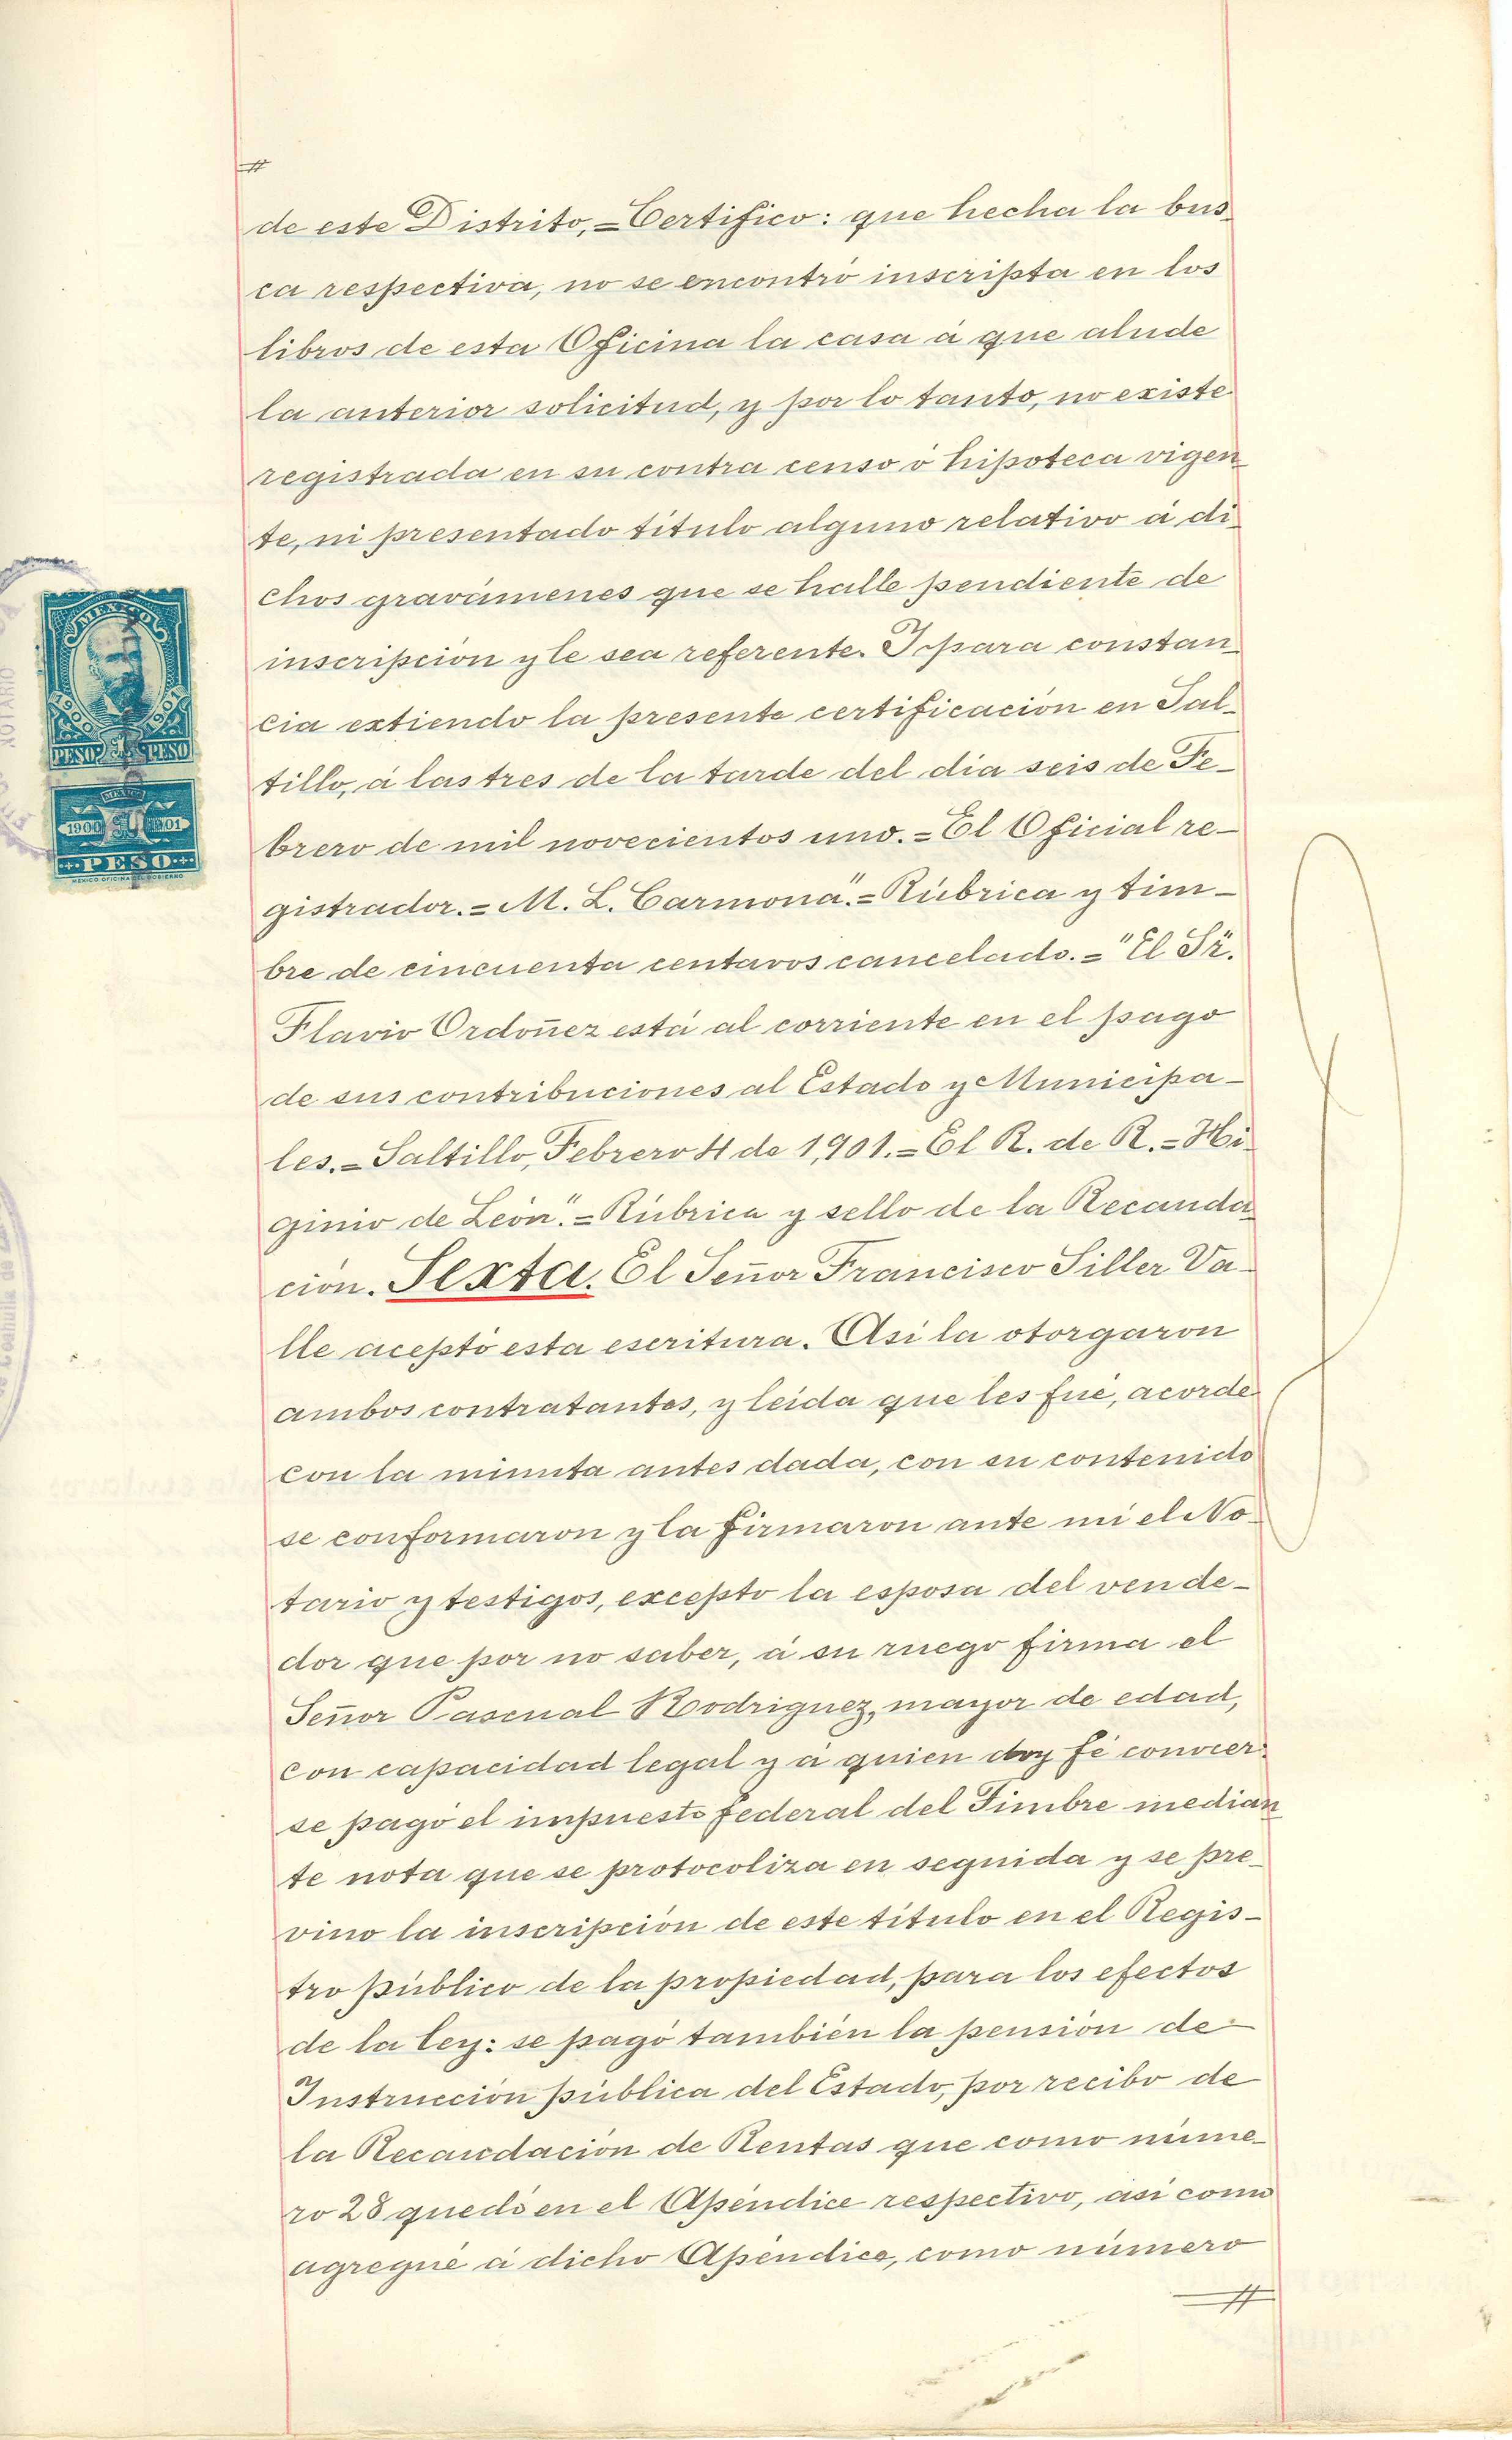 de este Distrito,=Certifico: que hecha la bus
ca respectiva, no se encontró inscripta en los
libros de esta Oficina la casa á que alude
la anterior solicitud, y por lo tanto, no existe
registrada en su contra censo ó hipoteca vigen
te, ni presentado título alguno relativo á di
chos gravámenes que se halle pendiente de
inscripción y le sea referente. Y para constan
cia extiendo la presente certificación en Sal-
tillo, á las tres de la tarde del día seis de Fe-
brero de mil novecientos uno.=El Oficial re-
gistrador.=M. L. Carmona".=Rúbrica y tim-
bre de cincuenta centavos cancelado.="El Sr.
Flavio Ordoñez está al corriente en el pago
de sus contribuciones al Estado y Municipa-
les.=Saltillo, Febrero 4 de 1,901.=El R. de R.=Hi
ginio de León".=Rúbrica y sello de la Recauda
ción. Sexta. El Señor Francisco Siller Va-
lle aceptó esta escritura. Así la otorgaron
ambos contratantes, y leída que les fué, acorde
con la minuta antes dada, con su contenido
se conformaron y la firmaron ante mí el No-
tario y testigos, excepto la esposa del vende-
dor que por no saber, á su ruego firma el
Señor Pascual Rodriguez, mayor de edad,
con capacidad legal y á quien doy fé conocer:
se pagó el impuesto federal del Timbre median
te nota que se protocoliza en seguida y se pre-
vino la inscripción de este título en el Regis-
tro público de la propiedad, para los efectos
de la ley: se pagó también la pensión de
Instrucción pública del Estado, por recibo de
la Recaudación de Rentas que como núme-
ro 28 quedó en el Apéndice respectivo, así como
agregué á dicho Apéndice, como número
MEXICO
1900 1901
PESO 1 PESO
MEXICO
1900 1901
PESO
MEXICO OFICINA DEL GOBIERNO
NOTARIO